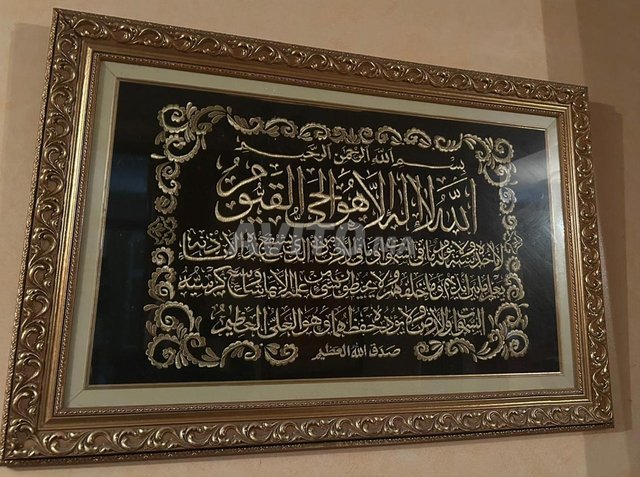 بسم الله الرحمن الرحيم
الله لا إله إلا هو الحي القيوم
لا تأخذه سنة ولا نوم له ما في السموات وما في الأرض من ذا الذي يشفع عنده إلا بإذنه
يعلم ما بين أيديهم وما خلفهم ولا يحيطون بشيء من علمه إلا بما شاء وسع كرسيه
السموات والأرض ولا يؤده حفظهما وهو العلي العظيم
صدق الله العظيم